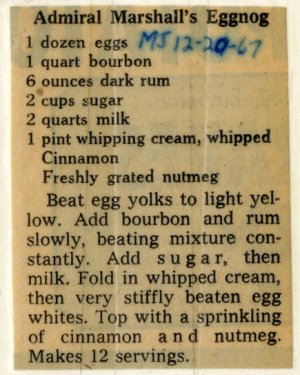 Admiral Marshall's Eggnog
1 dozen eggs MJ 12-20-67
1 quart bourbon
6 ounces dark rum
2 cups sugar
2 quarts milk
1 pint whipping cream, whipped
Cinnamon
Freshly grated nutmeg
Beat egg yolks to light yel-
low. Add bourbon and rum
slowly, beating mixture con-
stantly. Add sugar, then
milk. Fold in whipped cream,
then very stiffly beaten egg
whites. Top with a sprinkling
of cinnamon and nutmeg.
Makes 12 servings.